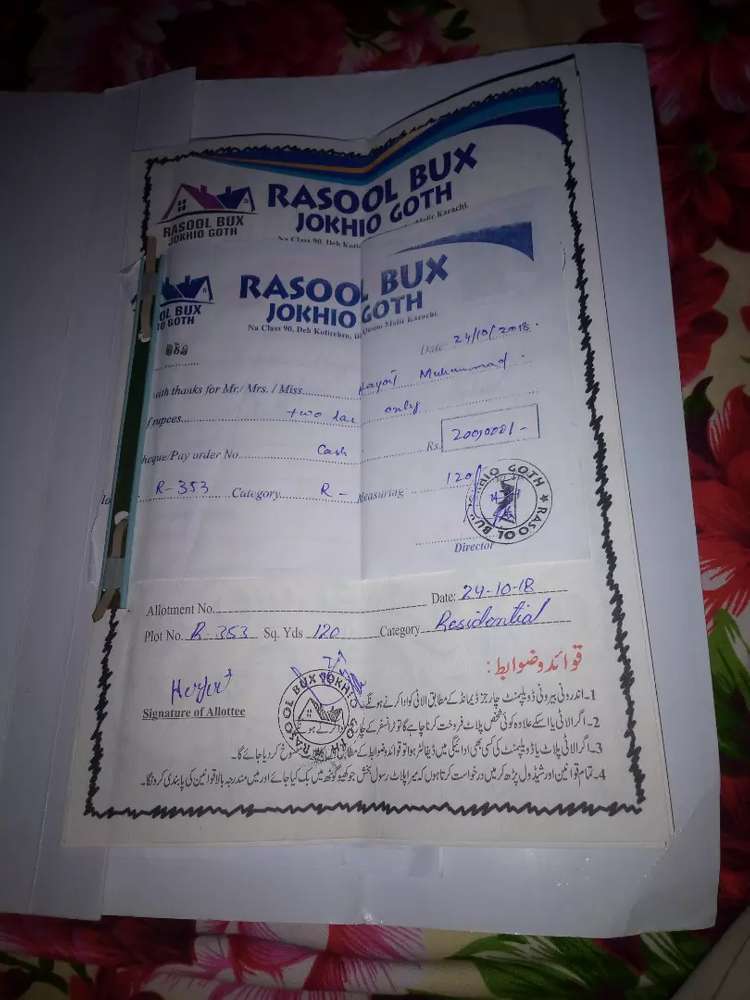 RASOOL BUX
JOKHIO GOTH
RASOOL BUX
JOKHIO GOTH
Na Class 90, Deh Malir Karachi.
RASOOL BUX
JOKHIO GOTH
OL BUX
IO GOTH
Na Class 90, Deh Malir Karachi.
Date 24/10/2018
with thanks for Mr./ Mrs. / Miss Hayat Muhammad
f rupees two lac only
heque/Pay order No. Cash Rs. 200,000/-
R-353 Category R- Measuring 120/
RASOOL BUX JOKHIO GOTH
Director
Allotment No. Date: 24-10-18
Plot No. R-353 Sq. Yds 120 Category Residential
قوائد وضوابط:
Signature of Allottee
RASOOL BUX JOKHIO GOTH
1۔اندرونی بیرونی ڈویلپمنٹ چارجز ڈیمانڈ کے مطابق الاٹی کو ادا کرنے ہونگے
2۔اگر الاٹی یا اسکے علاوہ کوئی شخص پلاٹ فروخت کرنا چاہے گا تو ٹرانسفر کے چا ادا کرنے ہو
3۔اگر الاٹی پلاٹ یا ڈویلپمنٹ کی کسی بھی ادائیگی میں ڈیفالٹر ہوا تو قوائد وضوابط کے مطابق منسوخ کر دیا جائے گا۔
4۔تمام قوانین اور شیڈول پڑھ کر میں درخواست کرتا ہوں کہ میرا پلاٹ رسول بخش جوکھیو گوٹھ میں بک کیا جائے اور میں مندرجہ بالا قوانین کی پابندی کرونگا۔